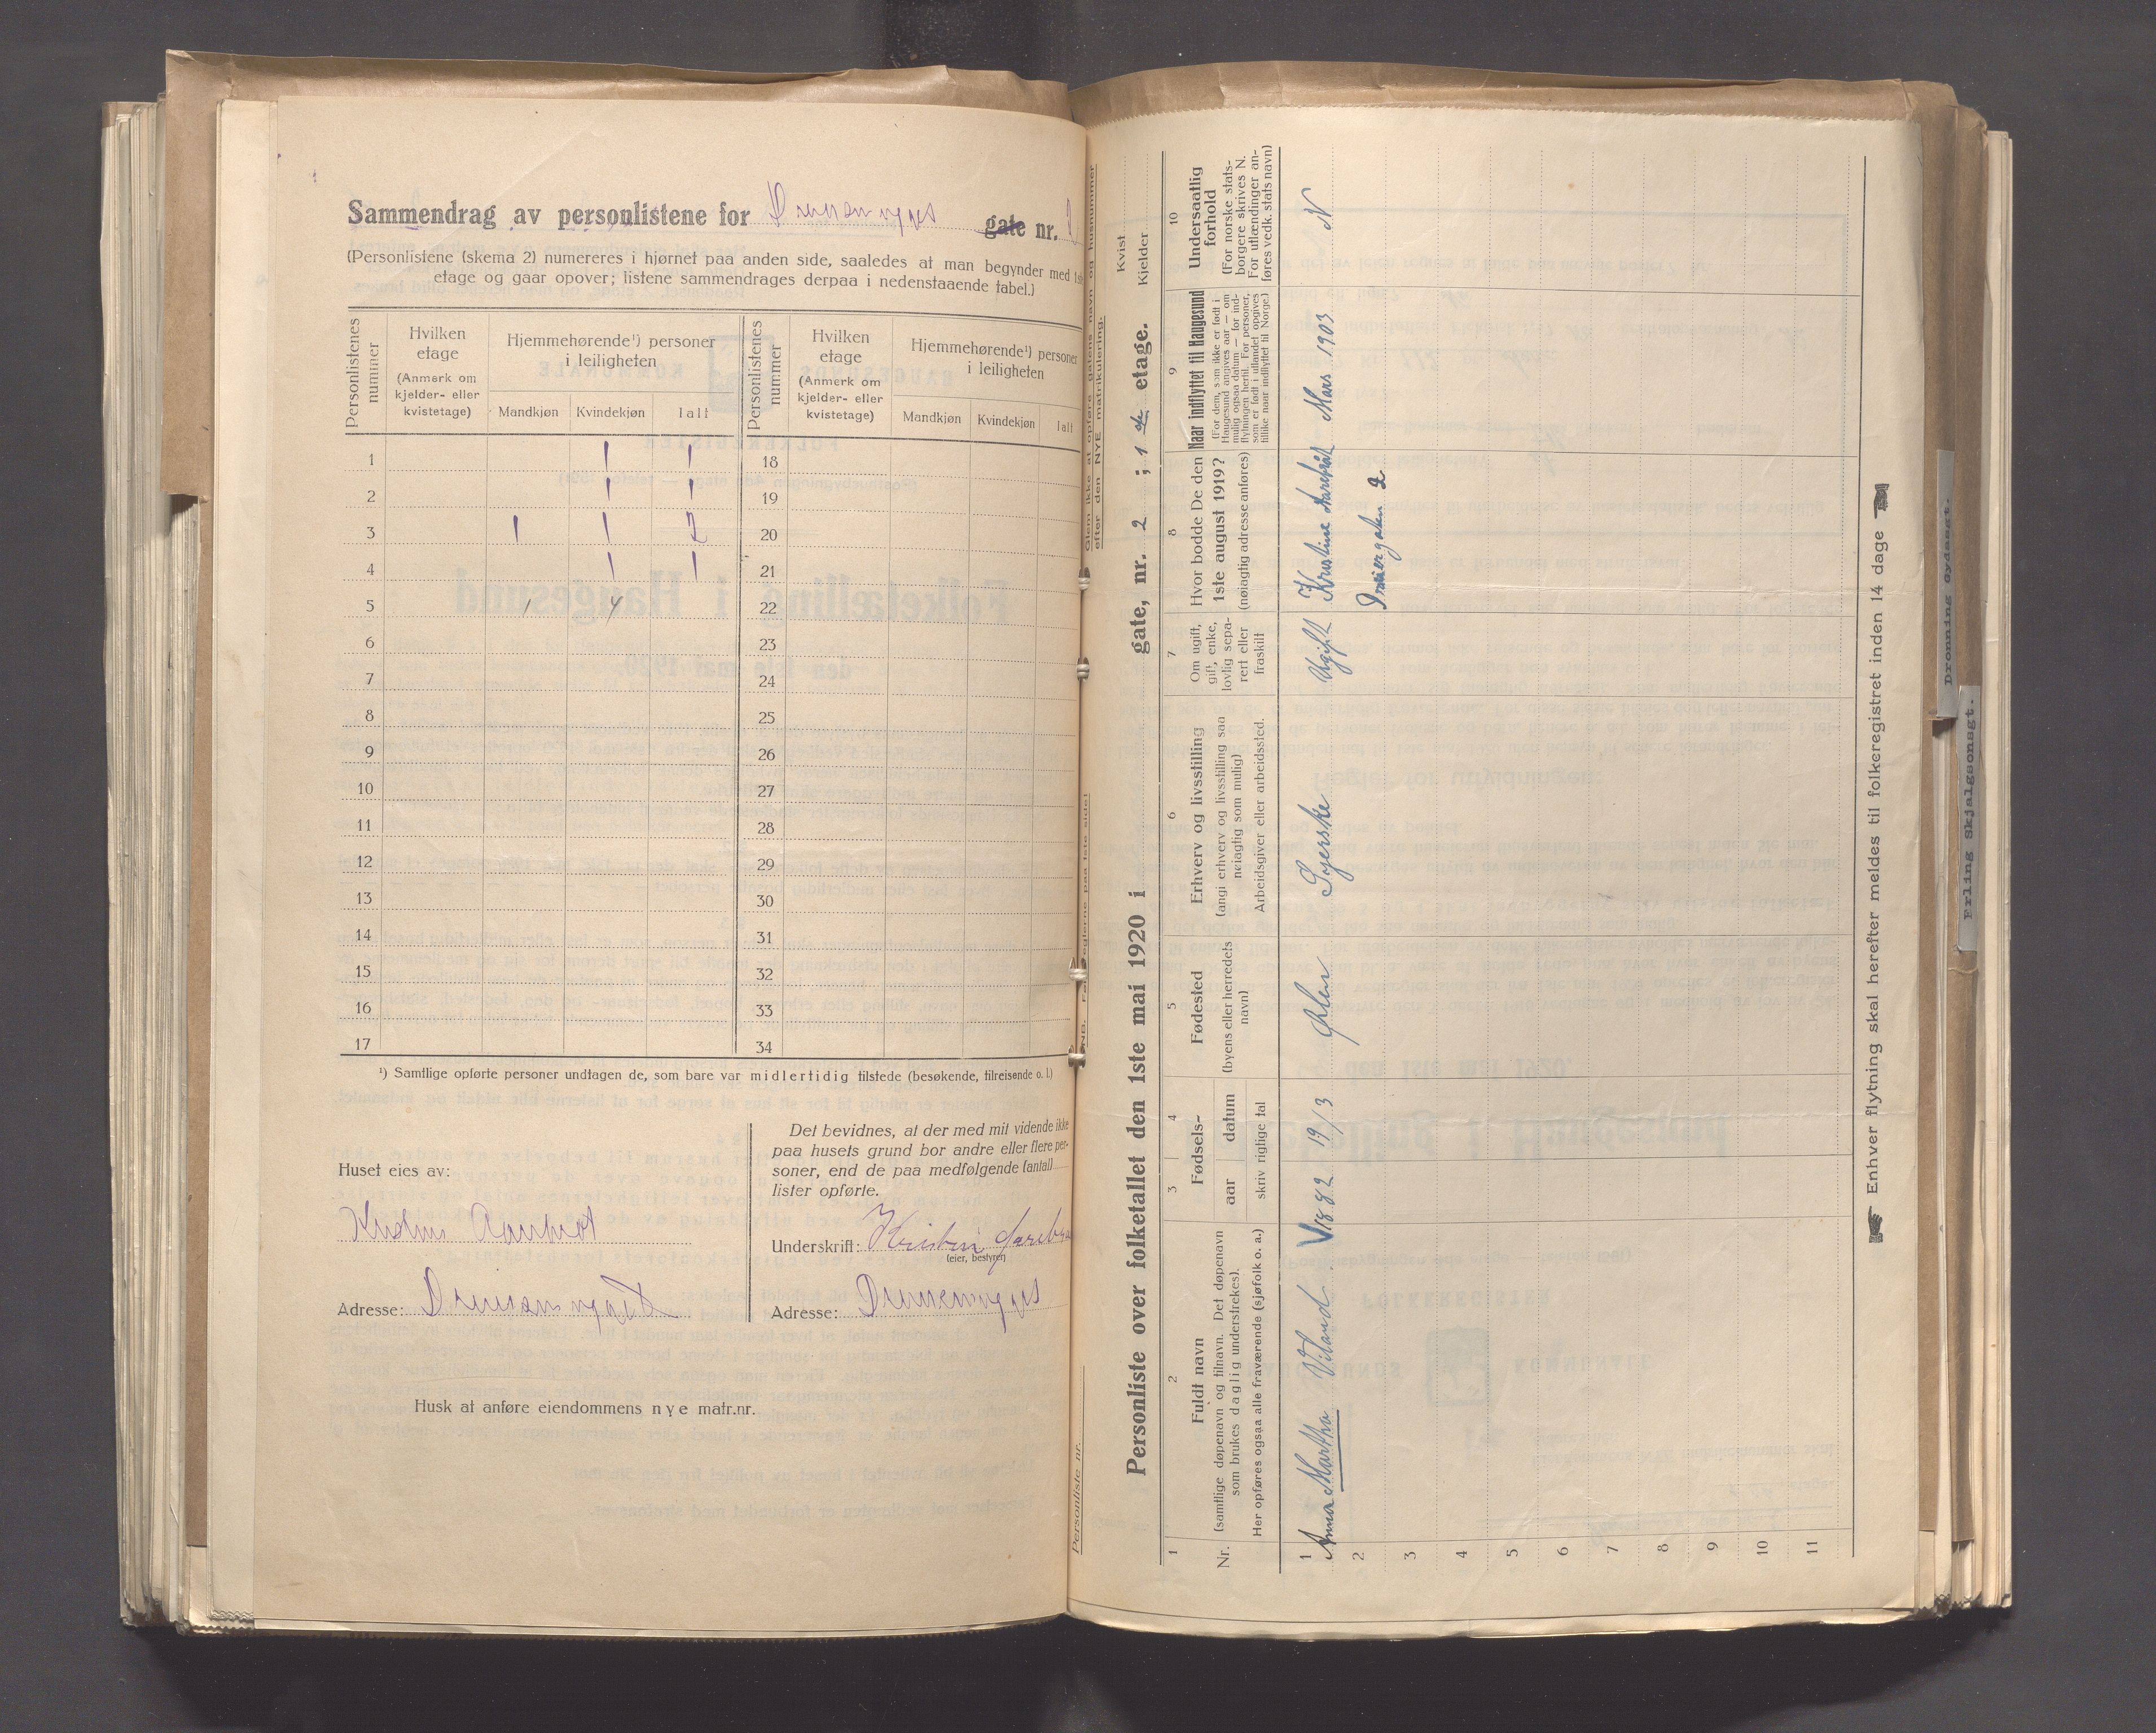 Sammendrag av personlistene for gate nr.
(Personlistene (skema 2) numereres i hjørnet paa anden side, saaledes at man begynder med 1ste
etage og gaar opover; listene sammendrages derpaa i nedenstaaende tabel.)
Personlistenes nummer
Hvilken etage
(Anmerk om kjelder- eller kvistetage)
Hjemmehørende¹) personer i leiligheten
Mandkjøn Kvindekjøn Ialt
Personlistenes nummer
Hvilken etage
(Anmerk om kjelder- eller kvistetage)
Hjemmehørende¹) personer i leiligheten
Mandkjøn Kvindekjøn Ialt
1 1 1 18
2 1 1 19
3 1 1 2 20
4 1 1 21
5 1 4 22
6 23
7 24
8 25
9 26
10 27
11 28
12 29
13 30
14 31
15 32
16 33
17 34
¹) Samtlige opførte personer undtagen de, som bare var midlertidig tilstede (besøkende, tilreisende o. l.)
Huset eies av:
Adresse:
Det bevidnes, at der med mit vidende ikke
paa husets grund bor andre eller flere per-
soner, end de paa medfølgende (antal)
lister opførte.
Underskrift:
(eier, bestyrer)
Adresse:
Husk at anføre eiendommens nye matr.nr.
Personliste nr.
Glem ikke at opføre gatens navn og husnummer
efter den NYE matrikulering.
Kvist
Kjelder
Personliste over folketallet den 1ste mai 1920 i gate, nr. 2 ; 1 ste etage.
1
Nr.
2
Fuldt navn
(samtlige døpenavn og tilnavn. Det døpenavn
som brukes daglig understrekes).
Her opføres ogsaa alle fraværende (sjøfolk o. a.)
3 4
Fødsels-
aar datum
skriv rigtige tal
5
Fødested
(byens eller herredets
navn)
6
Erhverv og livsstilling
(angi erhverv og livsstilling saa
nøiagtig som mulig)
Arbeidsgiver eller arbeidssted.
7
Om ugift,
gift, enke,
lovlig sepa-
rert eller
fraskilt
8
Hvor bodde De den
1ste august 1919?
(nøiagtig adresse anføres)
9
Naar indflyttet til Haugesund
(For dem, som ikke er født i
Haugesund angives aar — om
mulig ogsaa datum — for ind-
flytningen hertil. For personer,
som er født i utlandet opgives
tillike naar indflyttet til Norge.)
10
Undersaatlig
forhold
(For norske stats-
borgere skrives N.
For utlændinger an-
føres vedk. stats navn)
1 Anna Martha Viland 1882 19/3 Ølen Syerske Ugift Kristine Mars 1903 N
2 2
3
4
5
6
7
8
9
10
11
Enhver flytning skal herefter meldes til folkeregistret inden 14 dage
Dronning Gydasgt.
Erling Skjalgsonsgt.